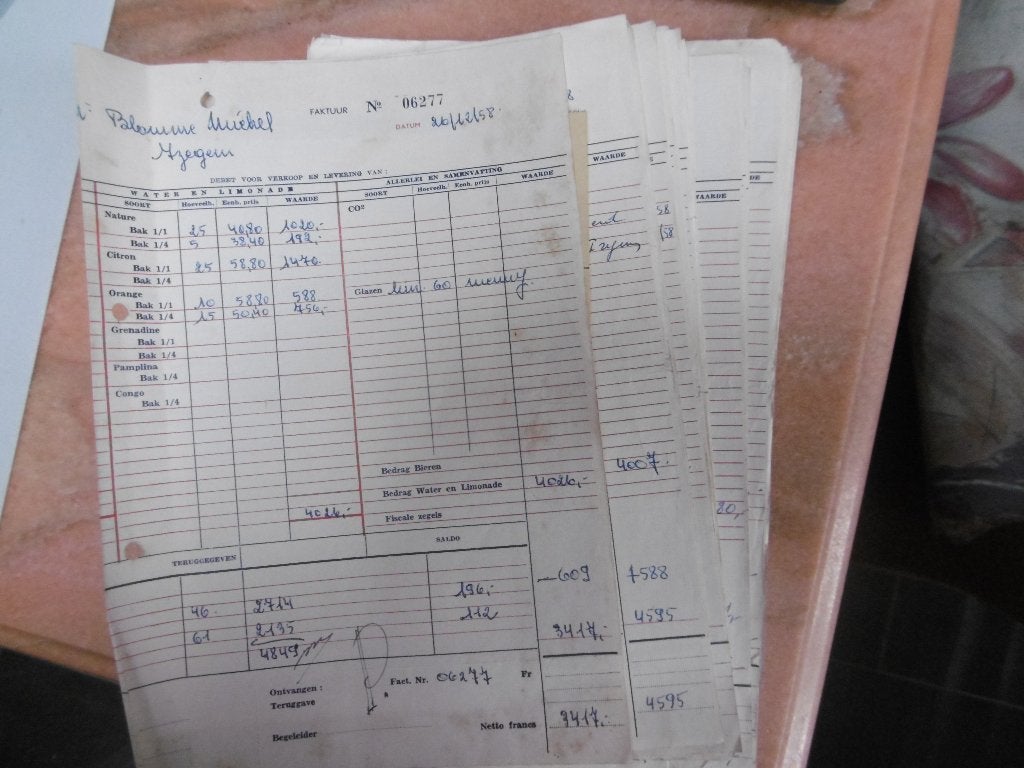 FAKTUUR Nº 06277
DATUM 26/12/58.
Blomme Michel
Izegem
DEBET VOOR VERKOOP EN LEVERING VAN :
WATER EN LIMONADE
SOORT Hoeveelh. Eenh. prijs WAARDE
Nature
Bak 1/1 25 40,80 1020,-
Bak 1/4 5 38,40 192,-
Citron
Bak 1/1 25 58,80 1470
Bak 1/4
Orange
Bak 1/1 10 58,80 588
Bak 1/4 15 50,40 756,-
Grenadine
Bak 1/1
Bak 1/4
Pamplina
Bak 1/4
Congo
Bak 1/4
4026,-
ALLERLEI EN SAMENVATTING
SOORT Hoeveelh. Eenh. prijs WAARDE
CO²
Glazen 60
Bedrag Bieren
Bedrag Water en Limonade 4026,-
Fiscale zegels
TERUGGEGEVEN SALDO
46 2714 196,- —609
61 2135 112 3417,-
4849
Ontvangen : Fact. Nr. 06277 Fr
Teruggave
Begeleider Netto francs 3417,-
WAARDE
58
/58
4007,-
+588
4595
4595
WAARDE
20,-
DE